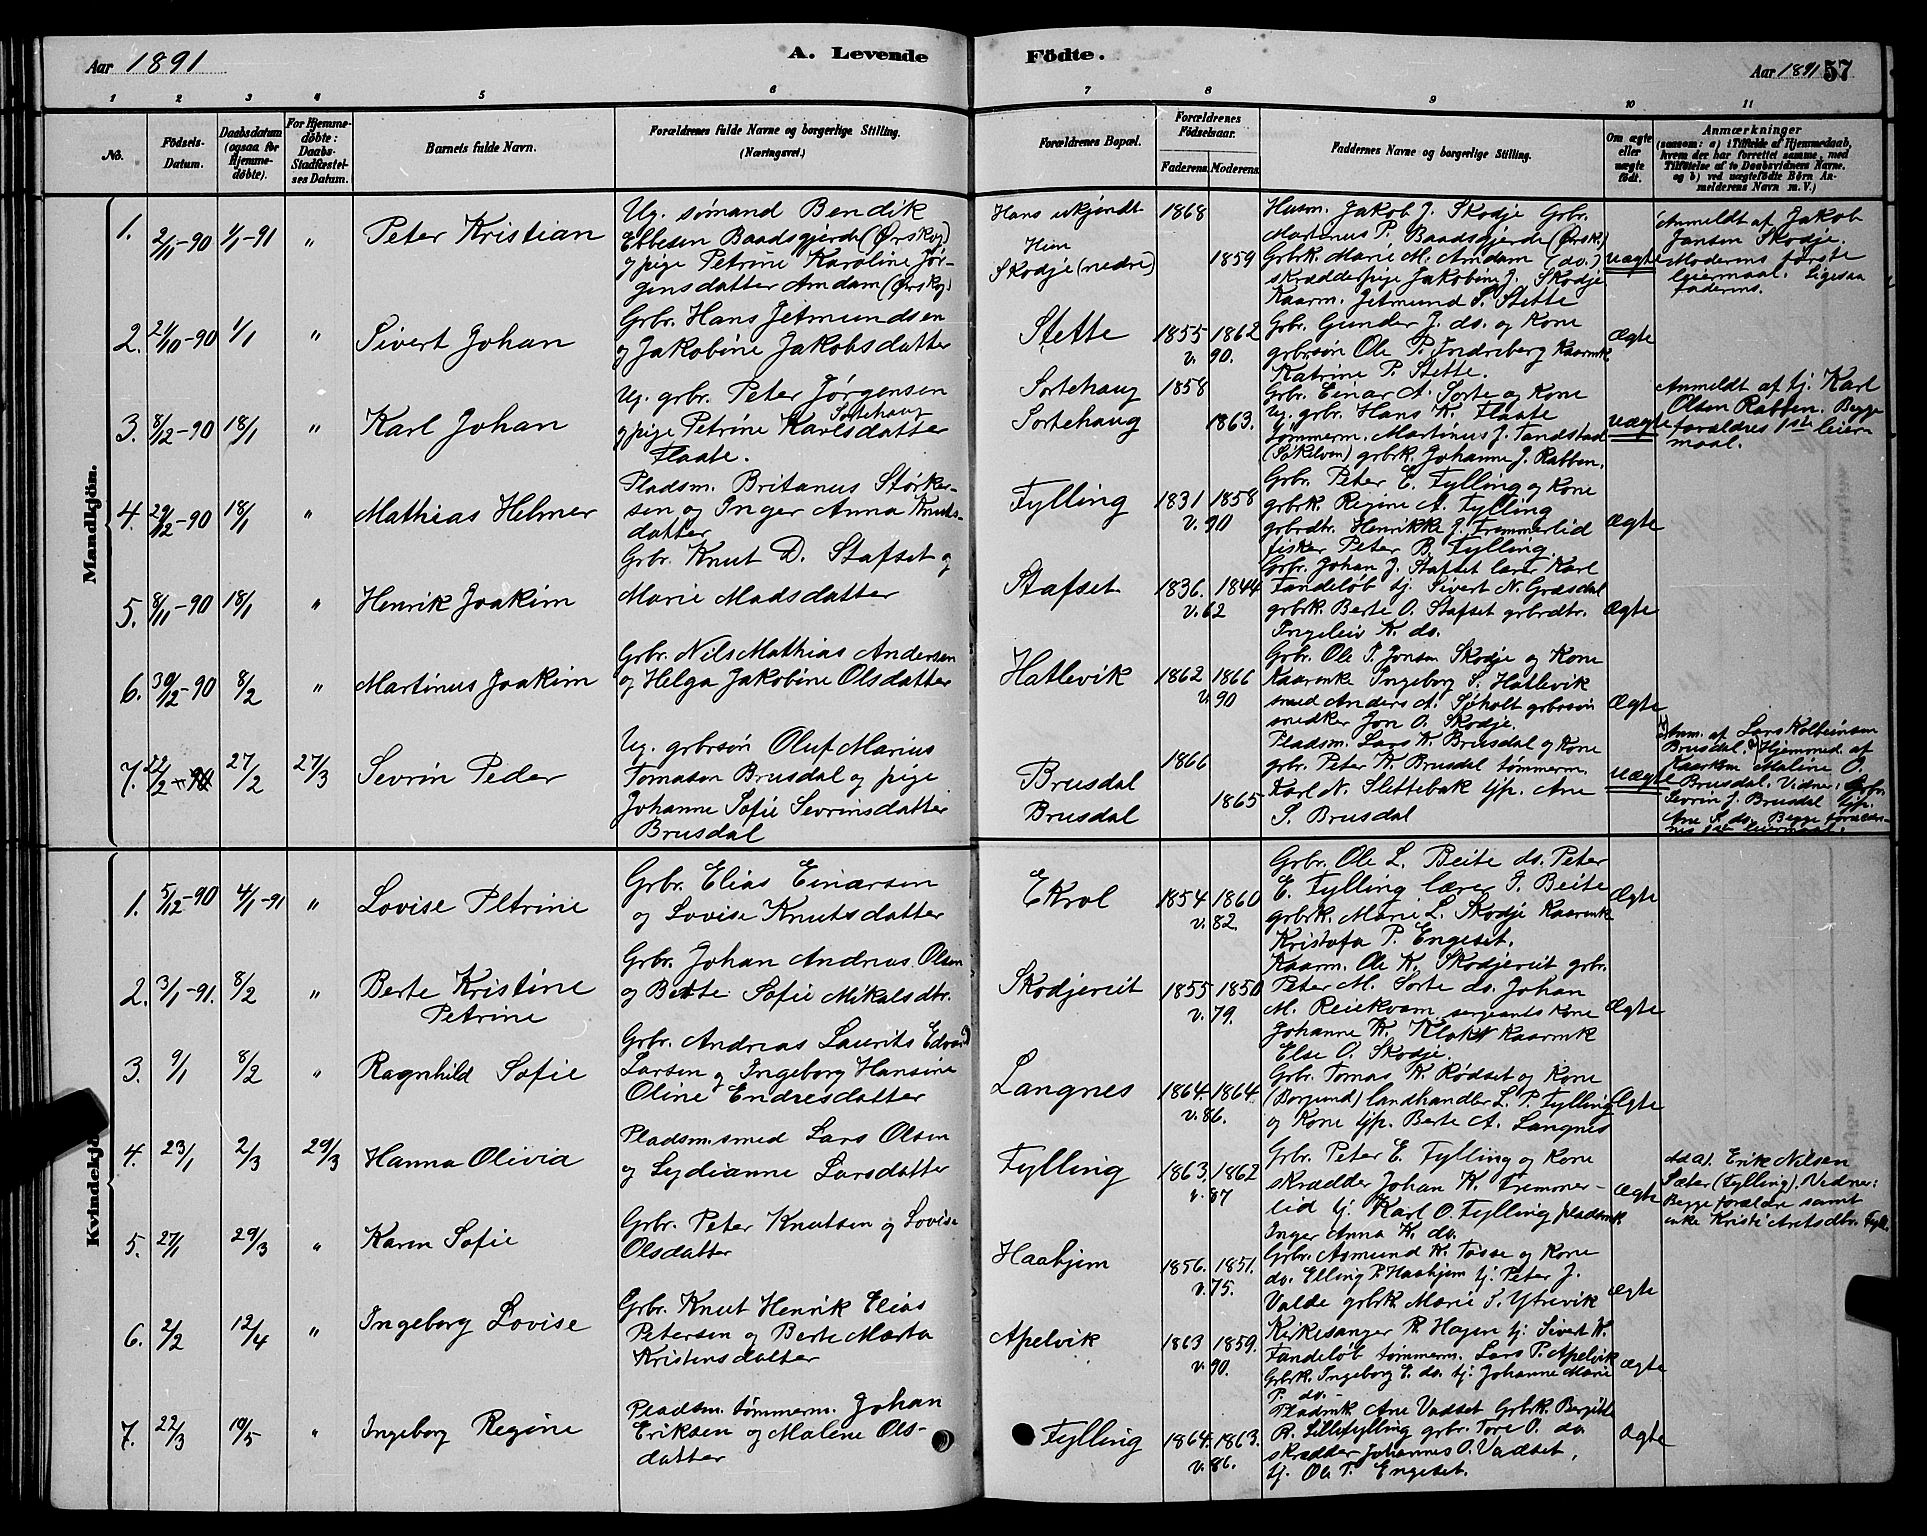 Aar 1891 A. Levende Födte. Aar 1891 57
1 2 3 4 5 6 7 8 9 10 11
No.
Födsels-Datum.
Daabsdatum (ogsaa for Hjemme-döbte).
For Hjemme-döbte: Daabs-Stadfæstel-ses Datum.
Barnets fulde Navn.
Forældrenes fulde Navne og borgerlige Stilling. (Næringsvei.)
Forældrenes Bopæl.
Forældrenes Födselsaar.
Faderens. Moderens.
Faddernes Navne og borgerlige Stilling.
Om ægte eller uægte födt.
Anmærkninger
(saasom: a) i Tilfælde af Hjemmedaab,
hvem der har forrettet samme, med
Tilföielse af to Daabsvidners Navne.
og b) ved uægtefödte Börn An-
melderens Navn m. V.)
Mandkjön.
1. 2/11-90 1/1-91 "
Peter Kristian
Ug. sømand Bendik
Ebbesen Baadsgjerde (Ørskog)
og pige Petrine Karoline Jør-
ginsdatter Amdam (Ørskog)
Hans ukjendt
Hun
Skodje (nedre)
1868
1859
Husm. Jakob J. Skodje Grbr.
Martinus P. Baadsgjerde (Ørsk.)
Grbrk. Marie M. Amdam (do.)
skrædderpige Jakobine J. Skodje
Kaarm. Jetmund S. Stette
uægte
Anmeldt af Jakob
Jansen Skodje.
Moderens første
leiermaal. Ligesaa
faderens.
2. 21/10-90 1/1 "
Sivert Johan
Grbr. Hans Jetmundsen
og Jakobine Jakobsdatter
Stette
1855 1862
v. 90.
Grbr. Gunder J. do. og Kone
grbrsøn Ole P. Indreberg Kaarmk
Katrine P. Stette.
Ægte
3. 8/12-90 18/1 "
Karl Johan
Ug. grbr. Peter Jørgensen
Sortehaug
og pige Petrine Karlsdatter
Flaate.
Sortehaug
Sortehaug
1858
1863.
Grbr. Einar A. Sorte og Kone
Ug. grbr. Hans K. Flaate
Tømmerm. Martinus J. Tandstad
(Søkelven) grbrk. Johanne J. Rabben.
uægte
Anmeldt af tj. Karl
Olsen Rabben. Begge
forældres 1ste leier-
maal.
4. 29/12-90 18/1 "
Mathias Helmer
Pladsm. Britanus Størker-
sen og Inger Anna Knuts-
datter
Fylling
1831 1858
v. 90
Grbr. Peter E. Fylling og Kone
grbrk. Regine A. Fylling
grbrdtr. Henrikke J. Fremmerlid
fisker Peter B. Fylling.
Ægte
5. 8/11-90 18/1 "
Henrik Joakim
Grbr. Knut D. Stafset og
Marie Madsdatter
Stafset
1836. 1844
v. 62
Grbr. Johan J. Stafset lærer Karl
Fandeløb tj. Sivert N. Grøsdal
grbrk. Berte O. Stafset grbrdtr.
Ingeleiv K. do.
Ægte
6. 30/12-90 8/2 "
Martinus Joakim
Grbr. Nils Mathias Andersen
og Helga Jakobine Olsdatter
Hatlevik
1862 1866
v. 90
Grbr. Ole T. Jonsen Skodje og Kone
Kaarmke Ingeborg S. Hatlevik
smed Anders A. Sjøholt grbrsøn
snedker Jon O. Skodje.
Ægte
7. 22/2 27/2 27/3
Sevrin Peder
Ug. grbrsøn Oluf Marius
Tomasen Brusdal og pige
Johanne Sofie Sevrinsdatter
Brusdal
Brusdal
Brusdal
1866
1865
Pladsm. Lars K. Brusdal og Kone
grbr. Peter K. Brusdal tømmerm.
Karl N. Slettebak tjp. Ane
S. Brusdal
uægte
Anm. af Lars Kolbeinsen
Brusdal. Hjemmed. af
Kaarkm Maline O.
Brusdal. Vidner: Grbr.
Sevrin J. Brusdal tjp.
Ane S. do. Begge forældre-
nes 1ste leiermaal.
Kvindekjön
1. 5/12-90 4/1-91 "
Lovise Petrine
Grbr. Elias Einarsen
og Lovise Knutsdatter
Ekrol
1854 1860
v. 82.
Grbr. Ole L. Beite do. Peter
E. Fylling lærer J. Beite
grbrk. Marie L. Skodje Kaarmk
Kristofa P. Engeset.
Ægte
2. 3/1-91. 8/2 "
Berte Kristine
Petrine
Grbr. Johan Andreas Olsen
og Berte Sofie Mikalsdtr.
Skodjereit
1855 1850
v. 79.
Kaarm. Ole K. Skodjereit grbr.
Peter M. Sorte do. Johan
M. Reiekvam sergeants kone
Johanne K. Klokk Kaarmk
Else O. Skodje.
Ægte
3. 9/1 8/2 "
Ragnhild Sofie
Grbr. Andreas Laurits Edvard
Larsen og Ingeborg Hansine
Oline Endresdatter
Langnes
1864. 1864.
v. 86.
Grbr. Tomas K. Rødset og Kone
(Borgund) landhandler L. P. Fylling
og Kone tjp. Berte A. Langnes
Ægte
4. 23/1 2/3 29/3
Hanna Olivia
Pladsm. smed Lars Olsen
og Lydianne Larsdatter
Fylling
1863. 1862
v. 87
Grbr. Peter E. Fylling og Kone
skrædder Johan K. Fremmer-
lid tj. Karl O. Fylling pladsmk
Inger Anna K. do.
Ægte
ad a). Erik Nilsen
Sæter (Fylling). Vidner:
Begge forældre samt
enke Kristi Aretsdtr. Fyll.
5. 27/1 29/3 "
Karen Sofie
Grbr. Peter Knutsen og Lovise
Olsdatter
Haahjem
1856. 1851.
v. 75.
Grbr. Asmund K. Tosse og Kone
do. Elling P. Haahjem tj. Peter J.
Valde grbrk. Marie S. Ytrevik
Ægte
6. 2/2 12/4 "
Ingeborg Lovise
Grbr. Knut Henrik Elias
Petersen og Berte Marta
Kristensdatter
Apelvik
1863 1859.
v. 90.
Kirkesanger R. Hagen tj. Sivert K.
Fandeløb tømmerm. Lars P. Apelvik
Grbrk. Ingeborg E. do. tj. Johanne Marie
P. do.
Ægte
7. 22/3 19/5 "
Ingeborg Regine
Pladsm. tømmerm. Johan
Eriksen og Malene Ols-
datter
Fylling
1864. 1863.
v. 86.
Pladsmk Ane Vadset Grbrk. Bergitte
R. Lillefylling grbr. Tore O. do
skrædder Johannes O. Vadset,
tj. Ole T. Engeset.
Ægte